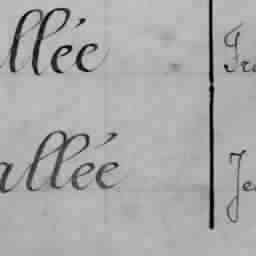 llée Fra
allée Jea